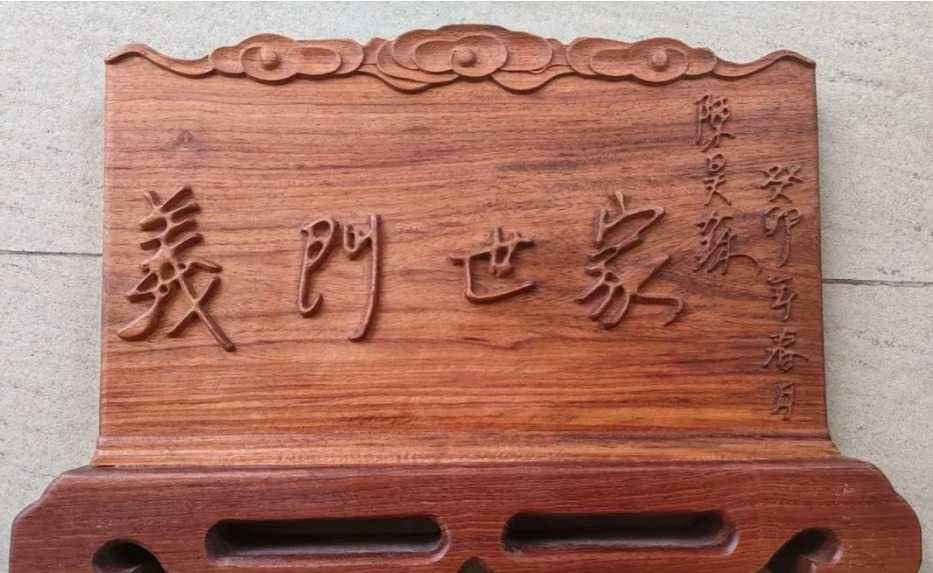 義門世家
癸卯年春月
陳昊蘇